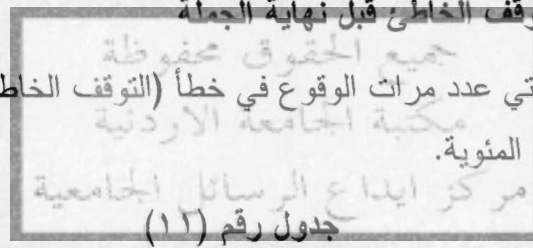 وقف الخاطئ قبل نهاية الجملة
جميع الحقوق محفوظة
تي عدد مرات الوقوع في خطأ (التوقف الخاط
مكتبة الجامعة الاردنية
المئوية.
مركز ايداع الرسائل الجامعية
جدول رقم (١١)